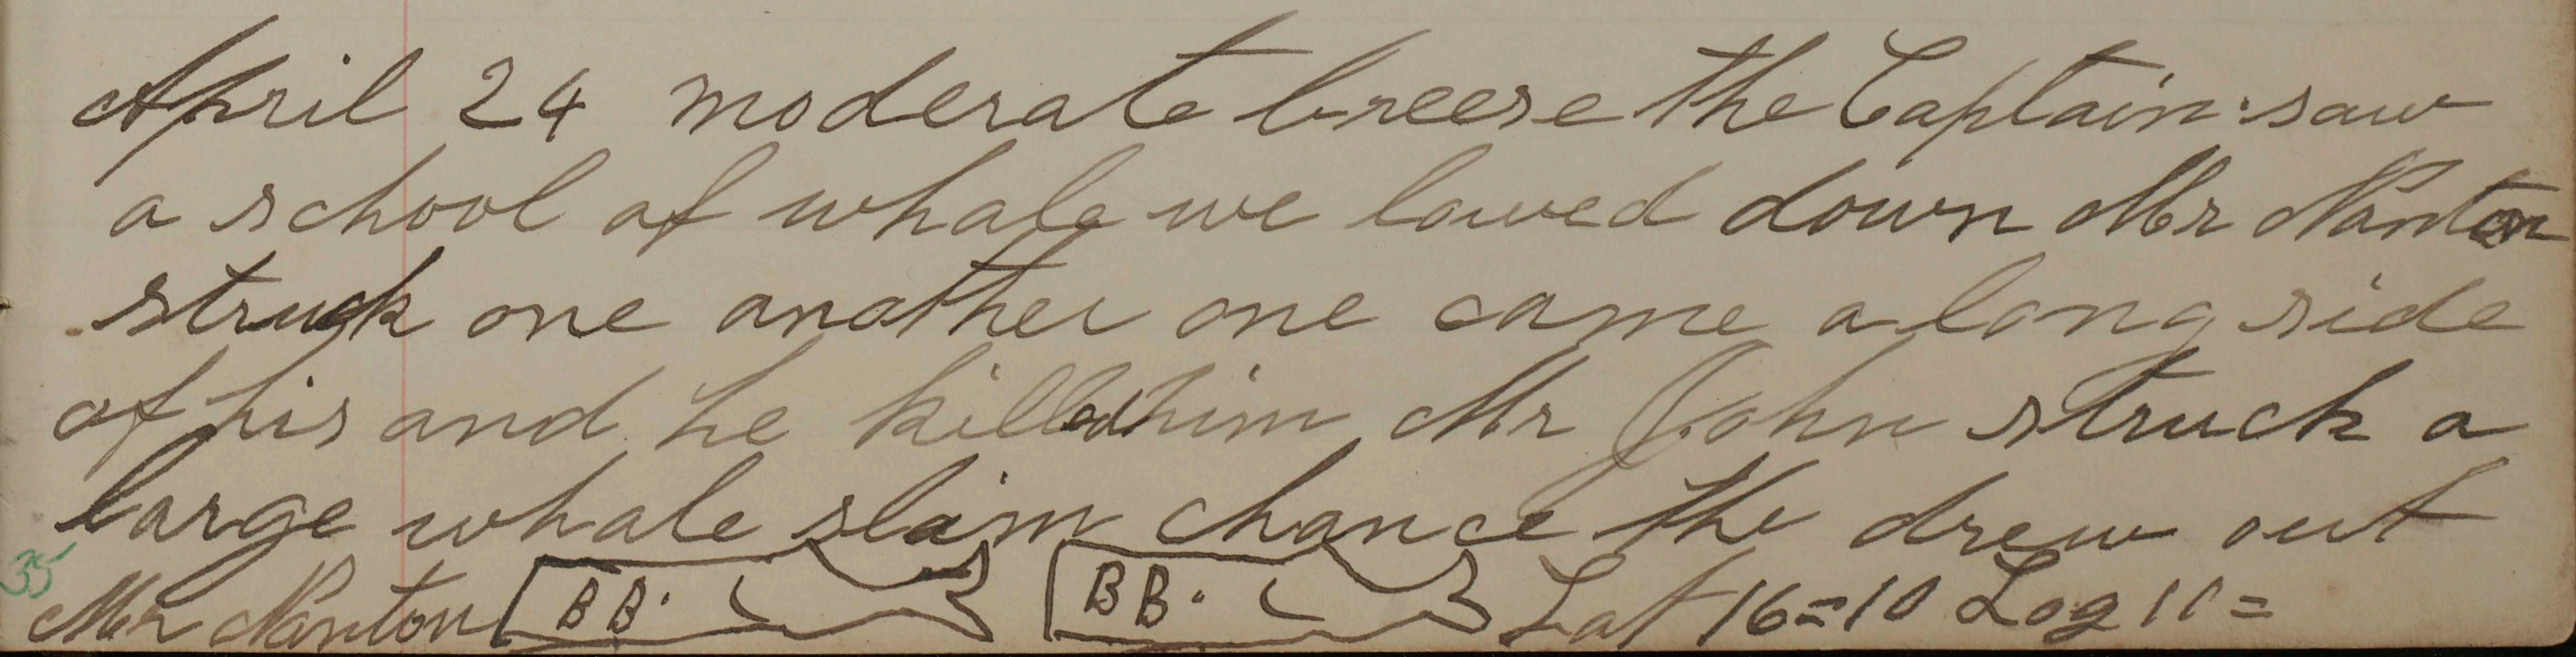 April 24 moderate breese the Captain saw
a school of whale we lowed down Mr Nanton
struck one another one came a long side
of his and he killed him Mr John struck a
large whale slim chance the drew out
35
Mr Nanton BB BB Lat 16=10 Log 11=